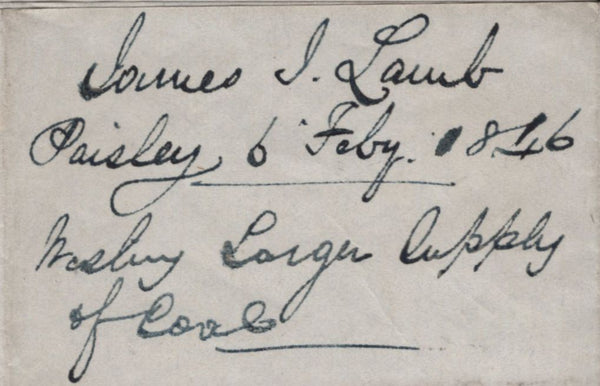 James I. Lamb
Paisley 6 Feby. 1846
Wishing Larger Supply
of Coal